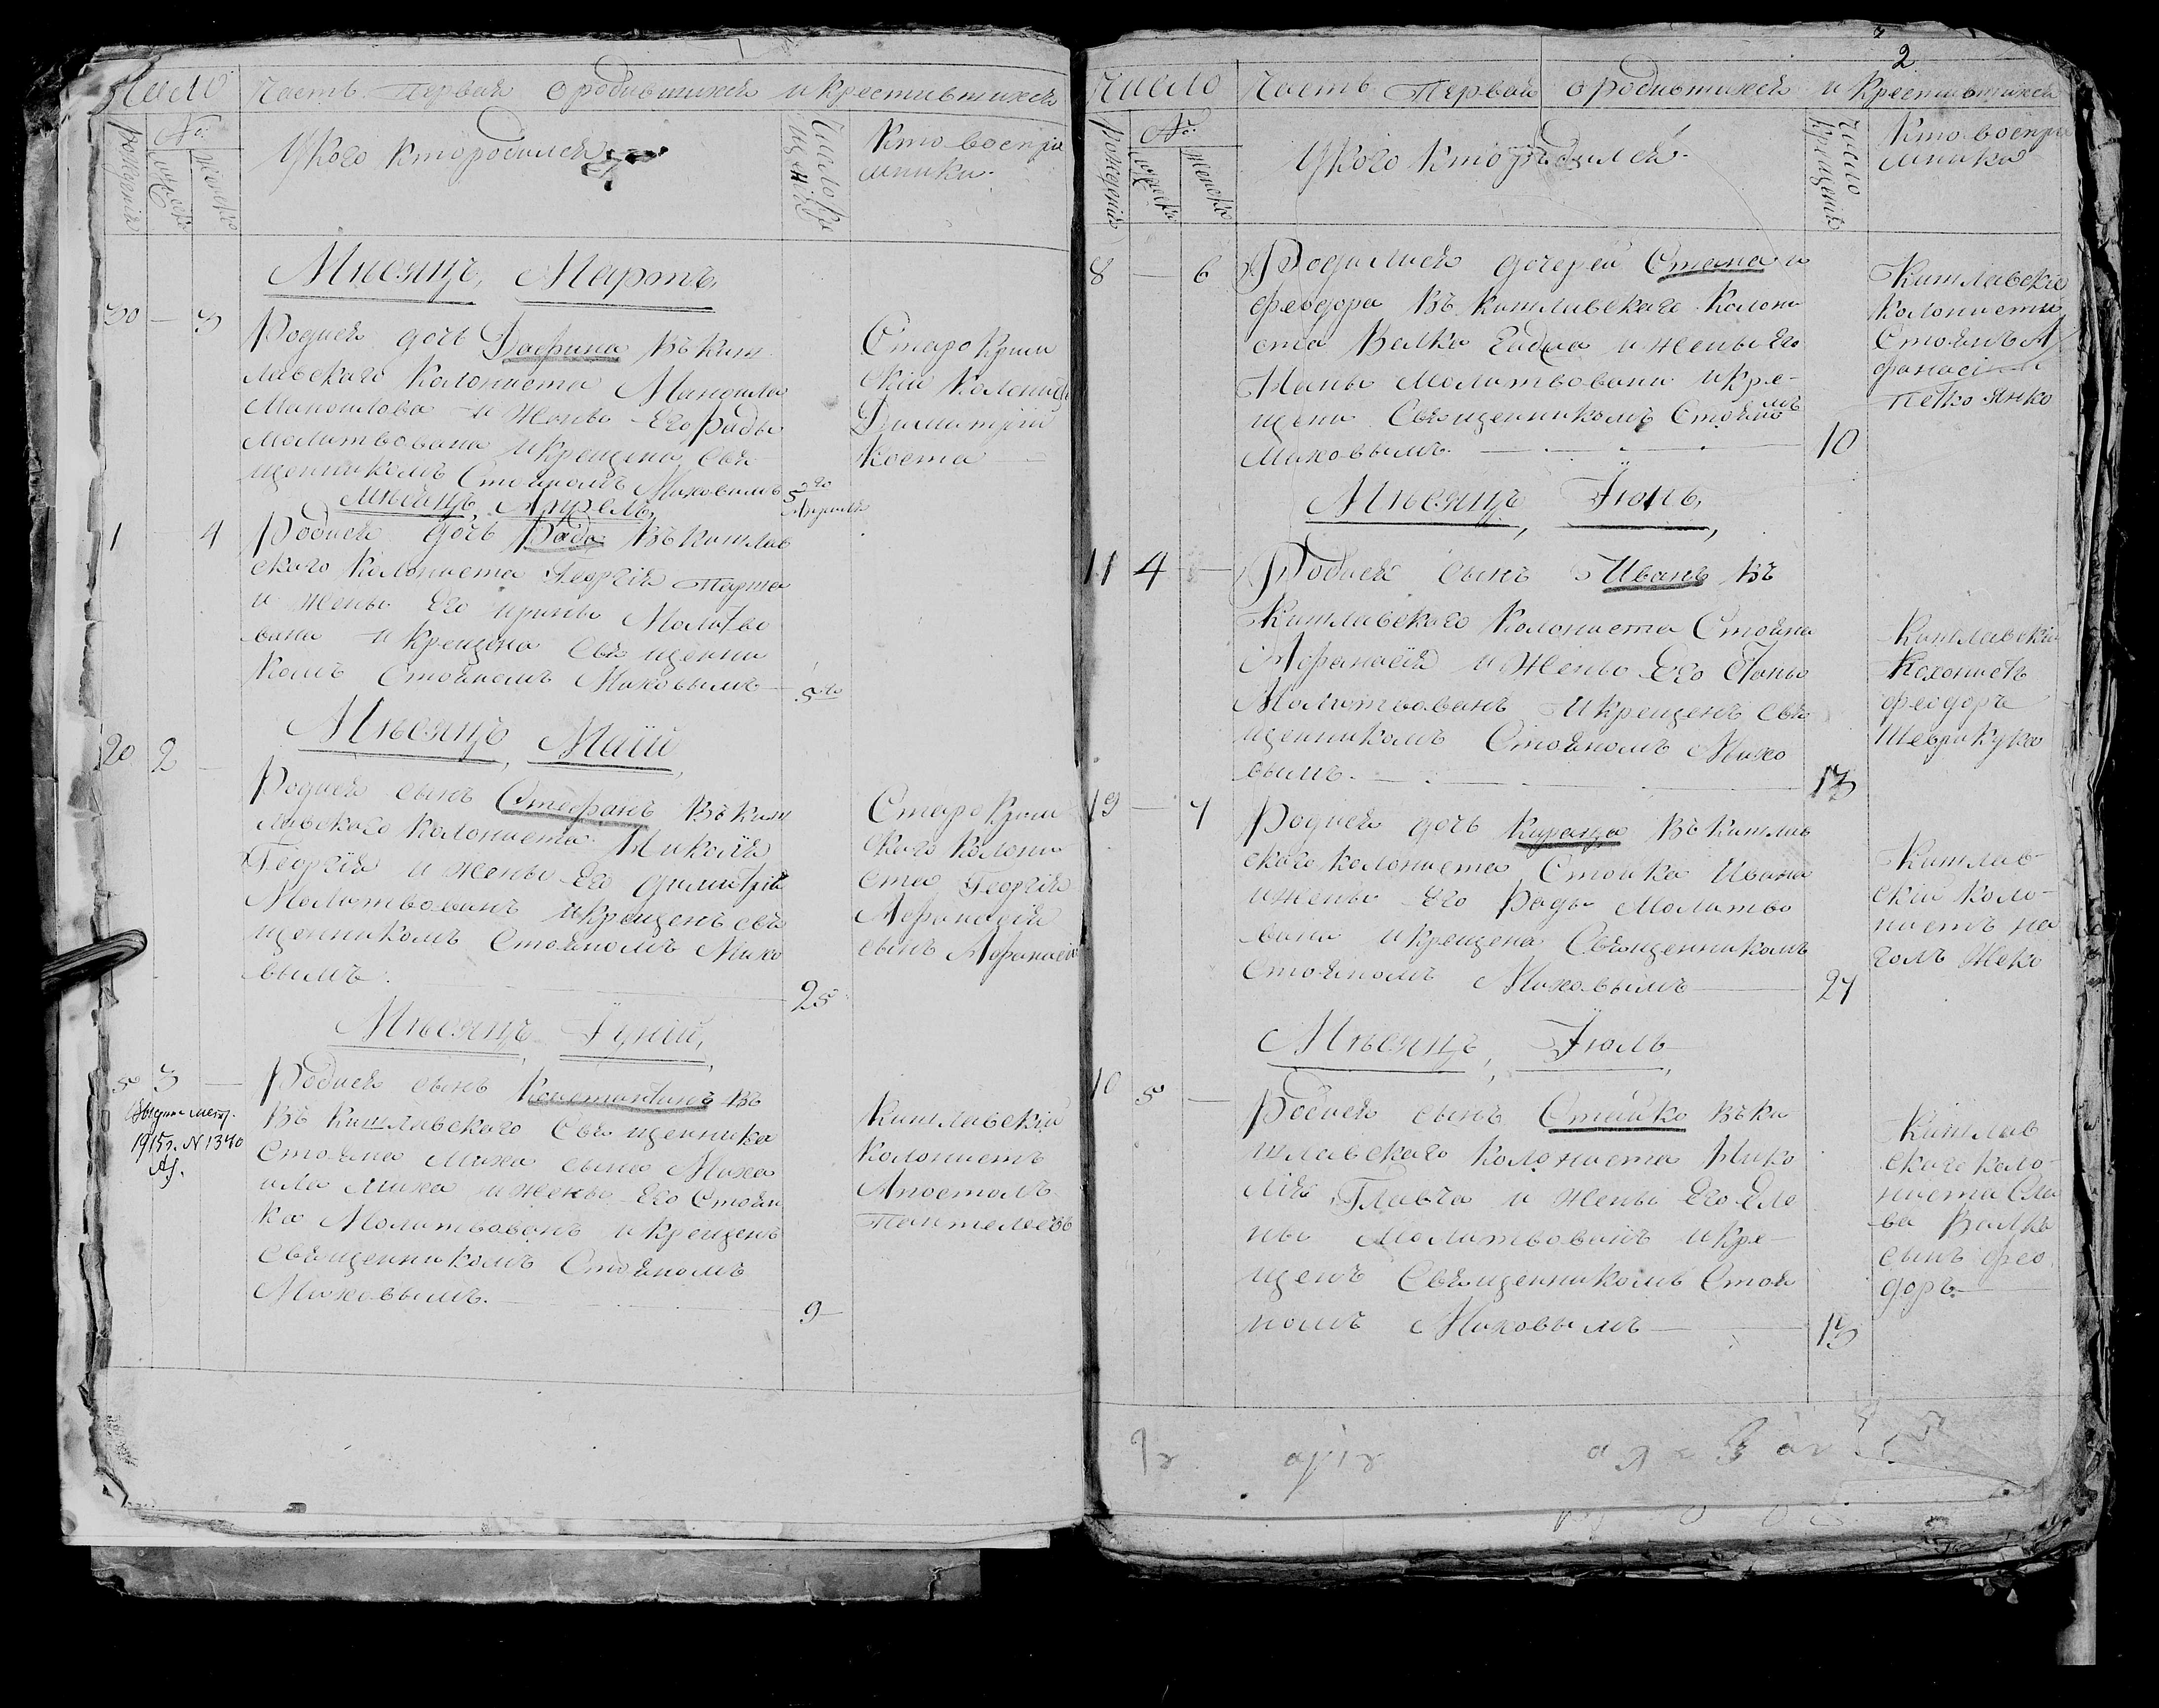 Число Часть Первая о родившихся и крестившихся
рождения
№:
мужеска
женска
У кого кто родился
Число кре
щения
Кто воспрiе
мники.
Мѣсяцъ, Мартъ,
30 — 3 Родися дочь Дафина Въ Киш
лавскаго Колониста Манойла
Манойлова и Жены Его Рады
Молитвована и крещена Свя
щенникомъ Стояномъ Миховымъ 5го
Апрѣля
Старо Крым
скiй Колонис
Димитрiй
Коста —
Мѣсяцъ, Апрѣль,
1 — 4 Родися дочь Рада Въ Кишлав
скаго Колониста Георгiя
и Жены Его Ирины Молитво
вана и Крещена Священни
комъ Стояномъ Миховымъ — 5го
Мѣсяцъ, Маiй,
20 2 — Родися сынъ Стефанъ Въ Киш
лавскаго Колониста Николя
Георгiя и Жены Его Димитрiи
Молитвованъ и Крещенъ свя
щенникомъ Стояномъ Михо
вымъ. 25
Старо Крым
скаго Колони
ста Георгiя
Афанасiя
сынъ Афанасiй
Мѣсяцъ Iунiй,
5 3 — Родися сынъ Константинъ Въ
Въ Кишлавскаго Священника
Стояна Миха сына Миха
ила Миха и Жены Его Стоян
ка Молитвованъ и крещенъ
Священникомъ Стояномъ
Миховымъ. 9
Кишлавскiй
Колонистъ
Апостолъ
Пантелеевъ
Выдано метр.
1915г. № 1340
2
Число Часть Первая о родившихся и Крестившихся
рождения
№:
мужеска
женска
У кого кто родился.
Число
Крещения
Кто воспрiе
мники
8 — 6 Родилися дочерей Стана и
Феодора Въ Кишлавскаго Колони
ста Валка и Жены Его
Молитвовани и Кре-
щени Священникомъ Стояномъ
Миховымъ. 10
Кишлавскiе
Колонисты
Стоянъ А
фанасiй и
Петко Янко
Мѣсяцъ Iюнь,
11 4 — Родися сынъ Иванъ Въ
Кишлавскаго Колониста Стояна
Афанасiя и Жены Его
Молитвованъ и крещенъ Свя
щенникомъ Стояномъ Михо
вымъ. 13
Кишлавскiй
Колонистъ
Феодоръ
19 — 7 Родися дочь Кираца Въ Кишлав
скаго колониста Стойка Ивана
и Жены Его Рады Молитво
вана и крещена Священникомъ
Стояномъ Миховымъ — 27
Кишлав
скiй коло-
нистъ
Мѣсяцъ, Iюль
10 5 — Родися сынъ Стайко Въ Ки
шлавскаго Колониста Нико
лiя Главча и Жены Его Еле
ны Молитвованъ и Кре-
щенъ Священникомъ Стоя
номъ Миховымъ — 13
Кишлав
скаго коло-
ниста Сла
ва Валкъ
сынъ Фео
доръ